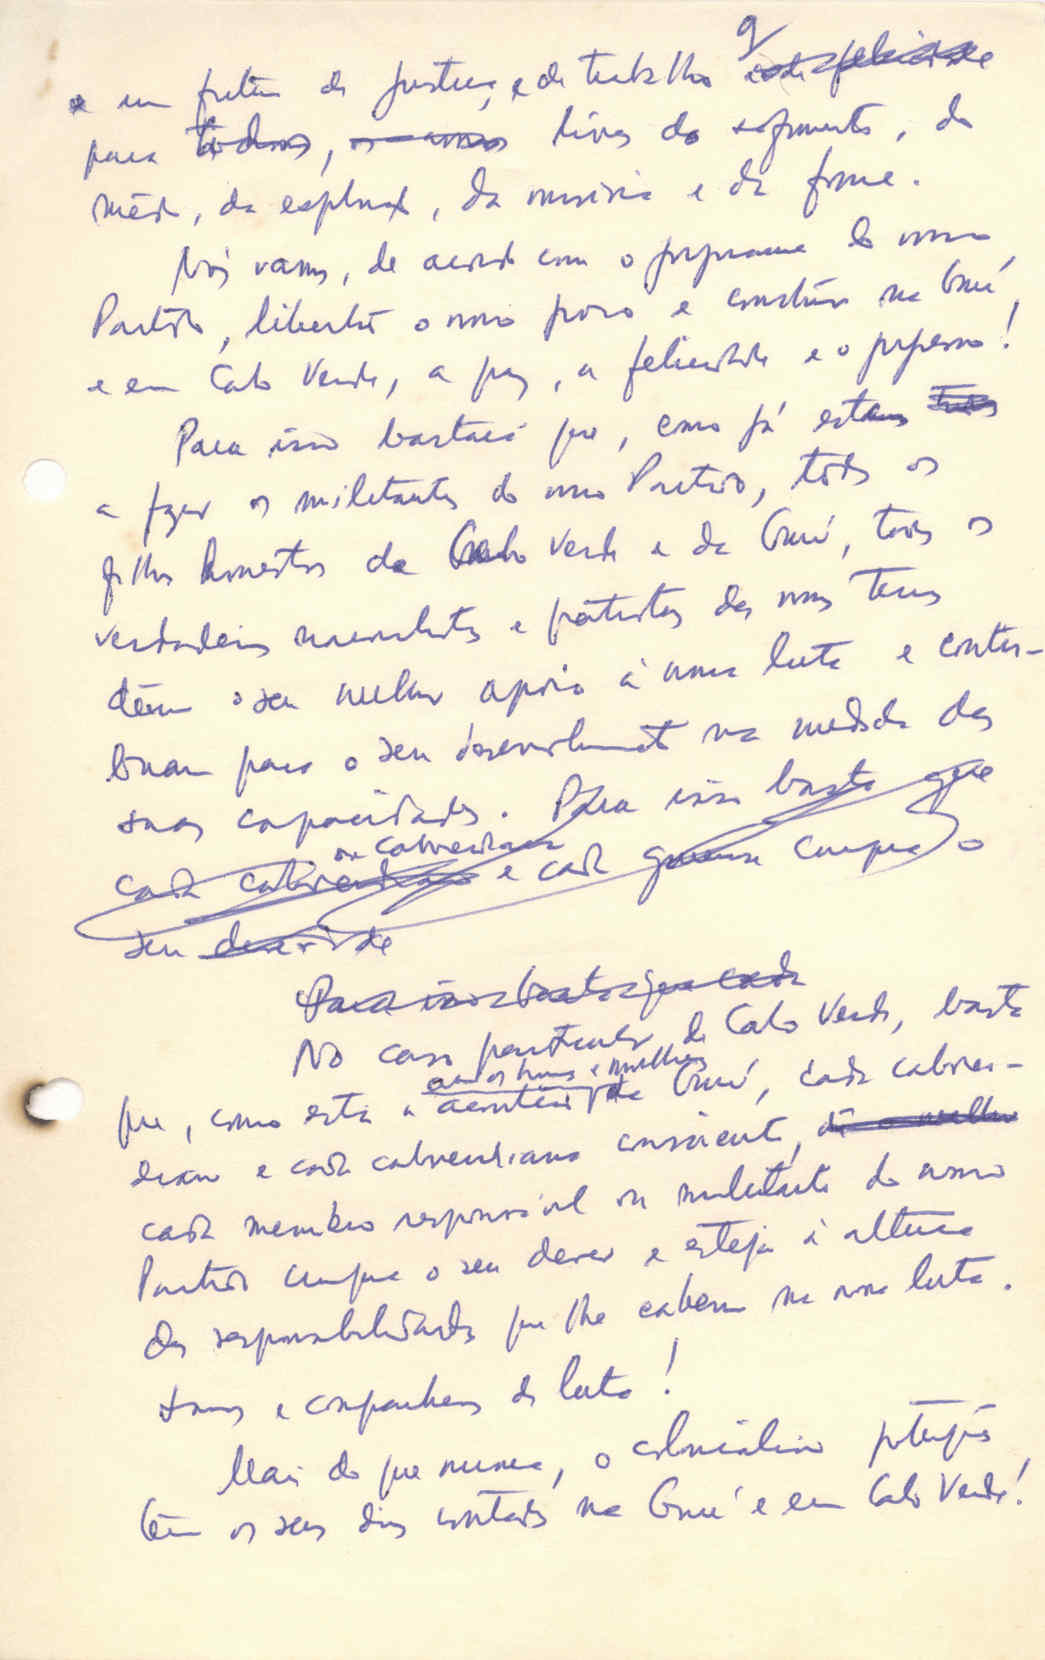 9
e um futuro de justiça, e de trabalho e de felicidade
para todos, livres do sofrimento, do
medo, da exploração, da miséria e da fome.
Nós vamos, de acordo com o programa do nosso
Partido, libertar o nosso povo e construir na Guiné,
e em Cabo Verde, a paz, a felicidade e o progresso!
Para isso bastará que, como já estamos
a fazer os militantes do nosso Partido, todos os
filhos honestos de Cabo Verde e da Guiné, todos os
verdadeiros nacionalistas e patriotas das nossas terras
dêem o seu melhor apoio à nossa luta e contri-
buam para o seu desenvolvimento na medida das
suas capacidades. Para isso basta que
ou cabverdiana
cada cabverdiano e cada guineense cumpra o
seu dever de
Para isso basta que cada
No caso particular de Cabo Verde, basta
com os homens e mulheres
que, como está a acontecer na Guiné, cada cabver-
diano e cada cabverdiana consciente, dê o melhor
cada membro responsável ou militante do nosso
Partido cumpra o seu dever e esteja à altura
das responsabilidades que lhe cabem na nossa luta.
e companheiros de luta!
Mais do que nunca, o colonialismo português
tem os seus dias contados na Guiné e em Cabo Verde!